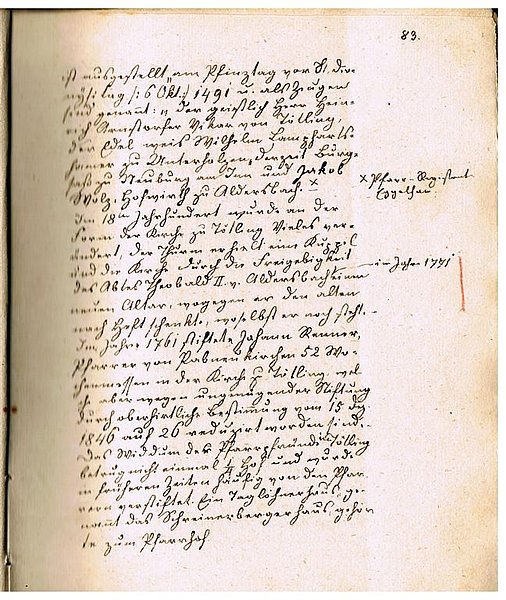 83.
ist ausgestellt „am Pfinztag vor St. Dio-
nÿsi Tag /: 6 Okt. :/ 1491 u. als Zeugen
sind genannt: „der geistlich Herr Hein-
rich Vikar von Tölling,
der Edel weis Wilhelm
zu Unterholzen, derzeit Burg-
saß zu Neuburg am Inn und Jakob
Wolz, Hofwirth zu Aldersbach. ×
× Pfarr-Registrat.
Im 18ten Jahrhundert wurde an der
Form der Kirche zu Tölling Vieles ver-
ändert, der Thurm erhielt eine Kuppel
und die Kirche durch die Freigebigkeit
im Jahre 1771
des Abtes Theobald II. v. Aldersbach einen
neuen Altar, wogegen er den alten
nach Heft schenkte, woselbst er noch steht.
Im Jahre 1761 stiftete Johann Renner,
Pfarrer von Pabneukirchen 52 Wo-
chenmessen in der Kirche zu Tölling, wel-
che aber wegen ungenügender Stiftung
durch oberhirtliche Bestimmung vom 15
1846 auf 26 reduzirt worden sind.
Das Widdum der Pfarrpfründe Tölling
betrug nicht einmal ¼ Hof und wurde
in früheren Zeiten häufig von den Pfar-
rern verstiftet. Ein Taglöhnerhaus, ge-
nannt das Schreinerbergerhaus gehör
te zum Pfarrhof